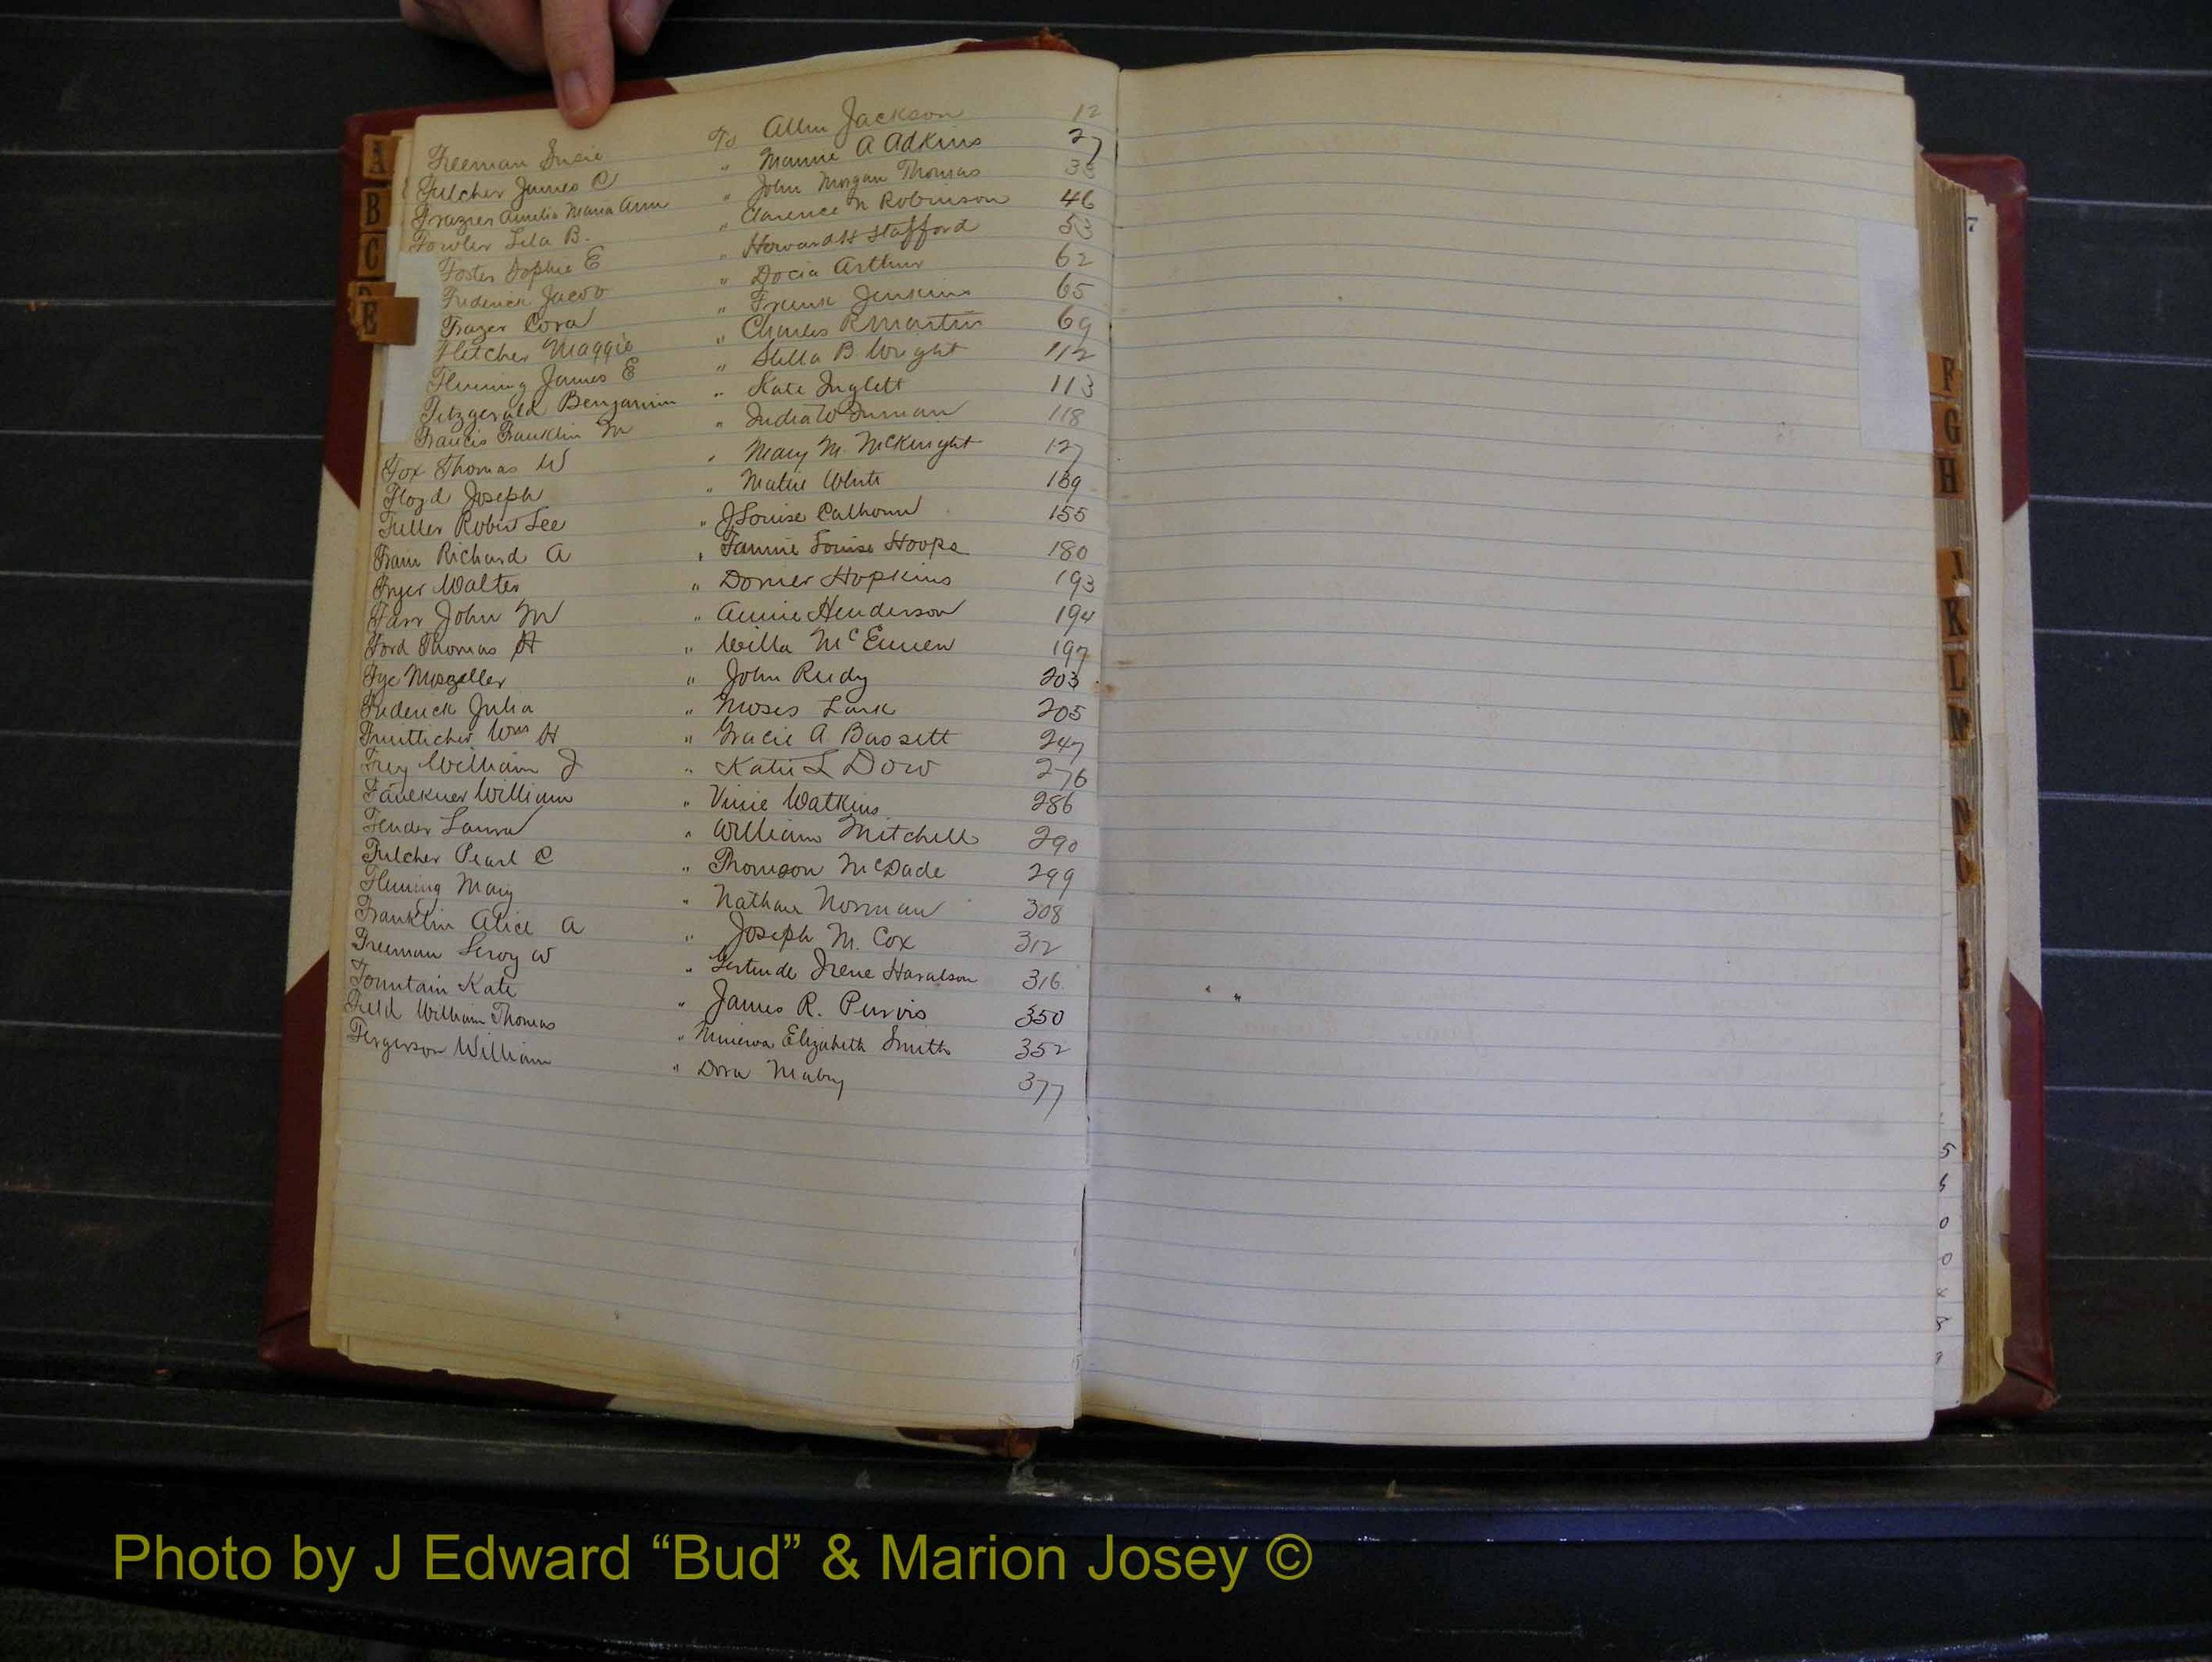 Freeman Susie To Allen Jackson 12
Fulcher James C " Mamie A Adkins 27
Frazier Amelia Maria Ann " John Morgan Thomas 38
Fowler Lila B. " Clarence N Robinson 46
Foster Sophie E " Howard H Stafford 53
Frederick Jacob " Docia Arthur 62
Frazer Cora " Frank Jenkins 65
Fletcher Maggie " Charles R Martin 69
Fleming James E " Stella B. Wright 112
Fitzgerald Benjamin " Kate Inglett 113
Francis Franklin M " India W Inman 118
Fox Thomas W " Mary M. McKnight 127
Floyd Joseph " Matie White 139
Fuller Robert Lee " J Louise Calhoun 155
Frain Richard A " Fannie Louise Hoops 180
Fryer Walter " Hopkins 193
Farr John M " Annie Henderson 194
Ford Thomas H " Willa McEuen 197
Fye " John Rudy 203
Frederick Julia " Moses Lark 205
Fruitticher Wm H " Gracie A Bassett 247
Frey William J " Katie L Dow 276
Faulkner William " Vinie Watkins 286
Fender Laura " William Mitchell 290
Fulcher Pearl C " Thomson McDade 299
Fleming Mary " Nathan Norman 308
Franklin Alice A " Joseph M. Cox 312
Freeman Leroy W " Gertrude Irene Haralson 316
Fountain Kate " James R. Purvis 350
Field William Thomas " Minerva Elizabeth Smith 352
Fergerson William " Dora Mabry 377
A
B
C
E
F
G
H
J
K
L
M
N
O
7
5
6
0
0
Photo by J Edward “Bud” & Marion Josey ©